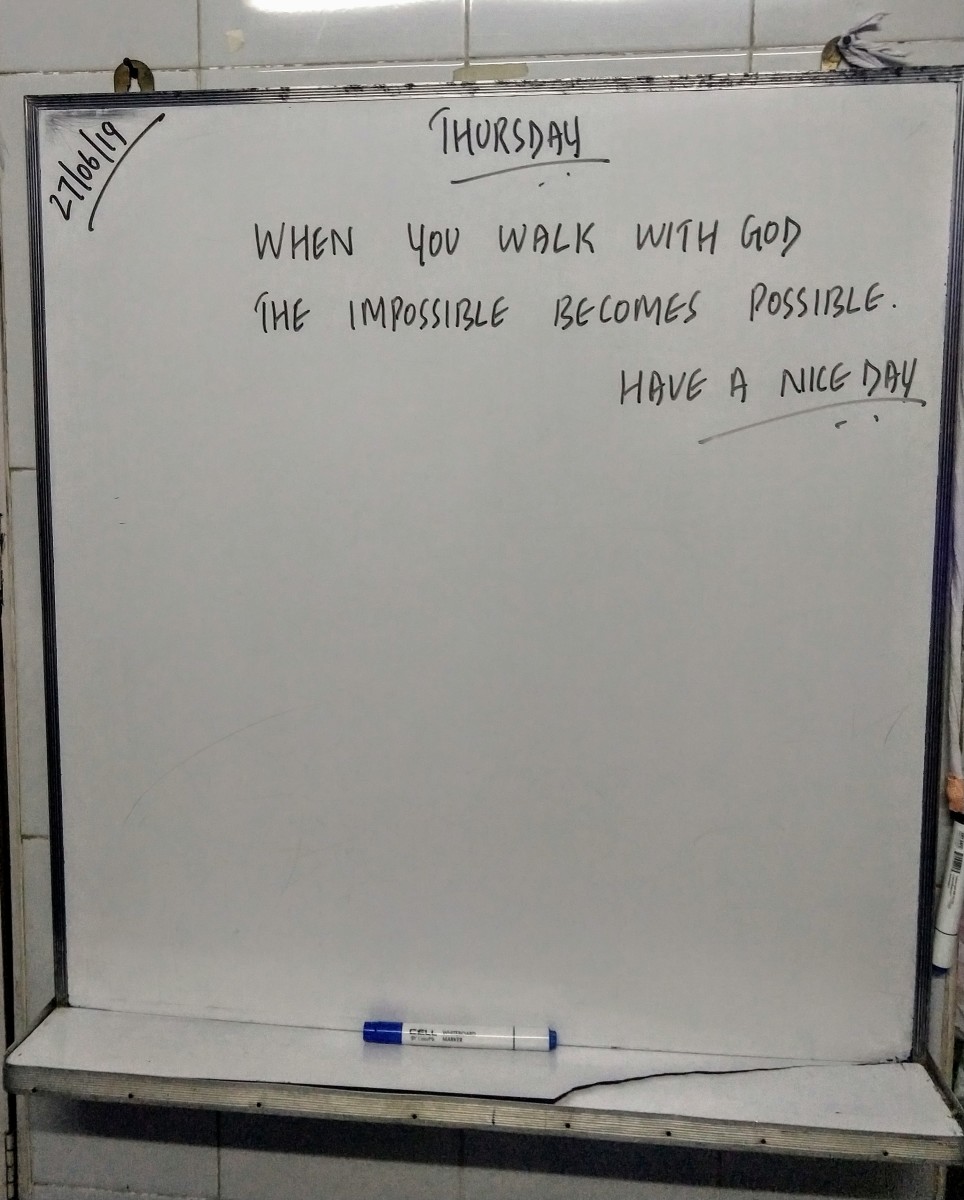 27/06/19
THURSDAY
WHEN YOU WALK WITH GOD
THE IMPOSSIBLE BECOMES POSSIBLE.
HAVE A NICE DAY
CELL
MARKER